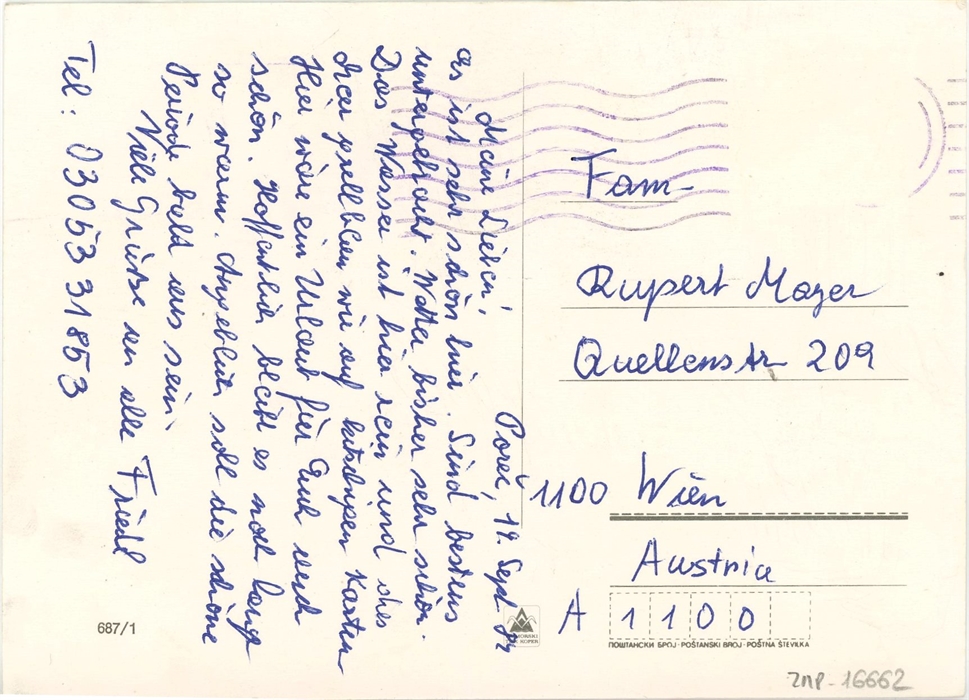 Poreč, 14. Sept 74
Meine Lieben!
es ist sehr schön hier. Sind bestens
untergebracht. Wetter bisher sehr schön.
Das Wasser ist hier rein und
wie auf kitschigen Karten
Hier wäre ein Urlaub für Euch auch
schön. Hoffentlich bleibt es noch lange
so warm. Angeblich soll die schöne
Periode bald aus sein
Viele Grüße an alle Friedl
Tel: 03053 31853
Fam.
Rupert Mayer
Quellenstr 209
1100 Wien
Austria
A 1100
ПОШТАНСКИ БРОЈ-POŠTANSKI BROJ-POŠTNA ŠTEVILKA
687/1
ZMP-16662